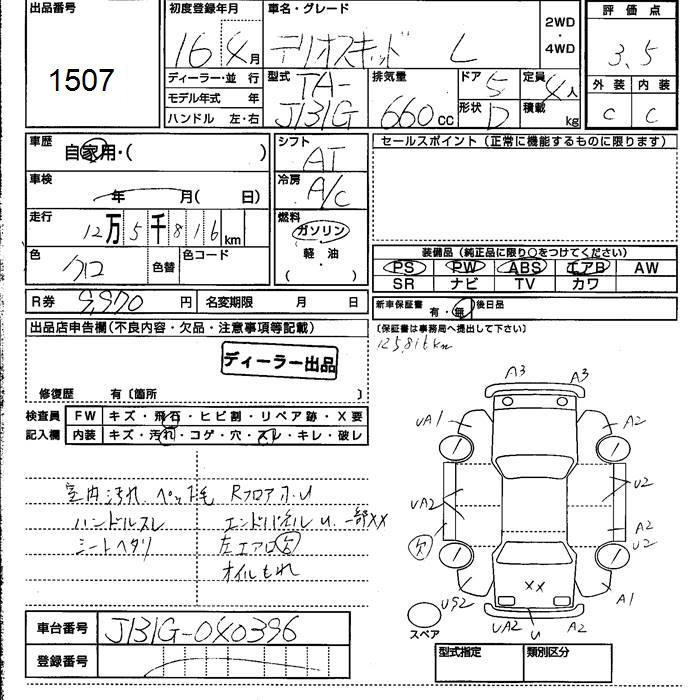 出品番号
1507
初度登録年月
16年4月
車名・グレード
テリオスキッド L
2WD
・
4WD
評価点
3.5
外装 内装
C C
ディーラー・並行
モデル年式 年
ハンドル 左・右
型式
TA-
J131G
排気量
660cc
ドア 5
形状 D
定員 4人
積載 kg
車歴
自家用・( )
車検
年 月( 日)
走行
12万5千816km
色
クロ
色替
色コード
シフト
AT
冷房
A/C
燃料
ガソリン
( 軽・油 )
セールスポイント(正常に機能するものに限ります)
装備品(純正品に限り○をつけてください)
PS PW ABS エアB AW
SR ナビ TV カワ
R券 9,970円 名変期限 月 日
新車保証書 有・無 後日品
〔保証書は事務局へ提出して下さい〕
125,816km
出品店申告欄(不良内容・欠品・注意事項等記載)
ディーラー出品
修復歴 有〔箇所 〕
検査員
記入欄
FW キズ・飛石・ヒビ割・リペア跡・X要
内装 キズ・汚れ・コゲ・穴・スレ・キレ・破レ
室内汚れ、ペット毛
ハンドルスレ
シートヘタリ
Rフロア小U
エンドパネルU、一部XX
左エアロ欠
オイルもれ
A3 A3
UA1 A2
U2
UA2
A2
欠 U2
US2 XX A1
UA2 U A2
スペア
車台番号 J131G-040396
登録番号
型式指定 類別区分